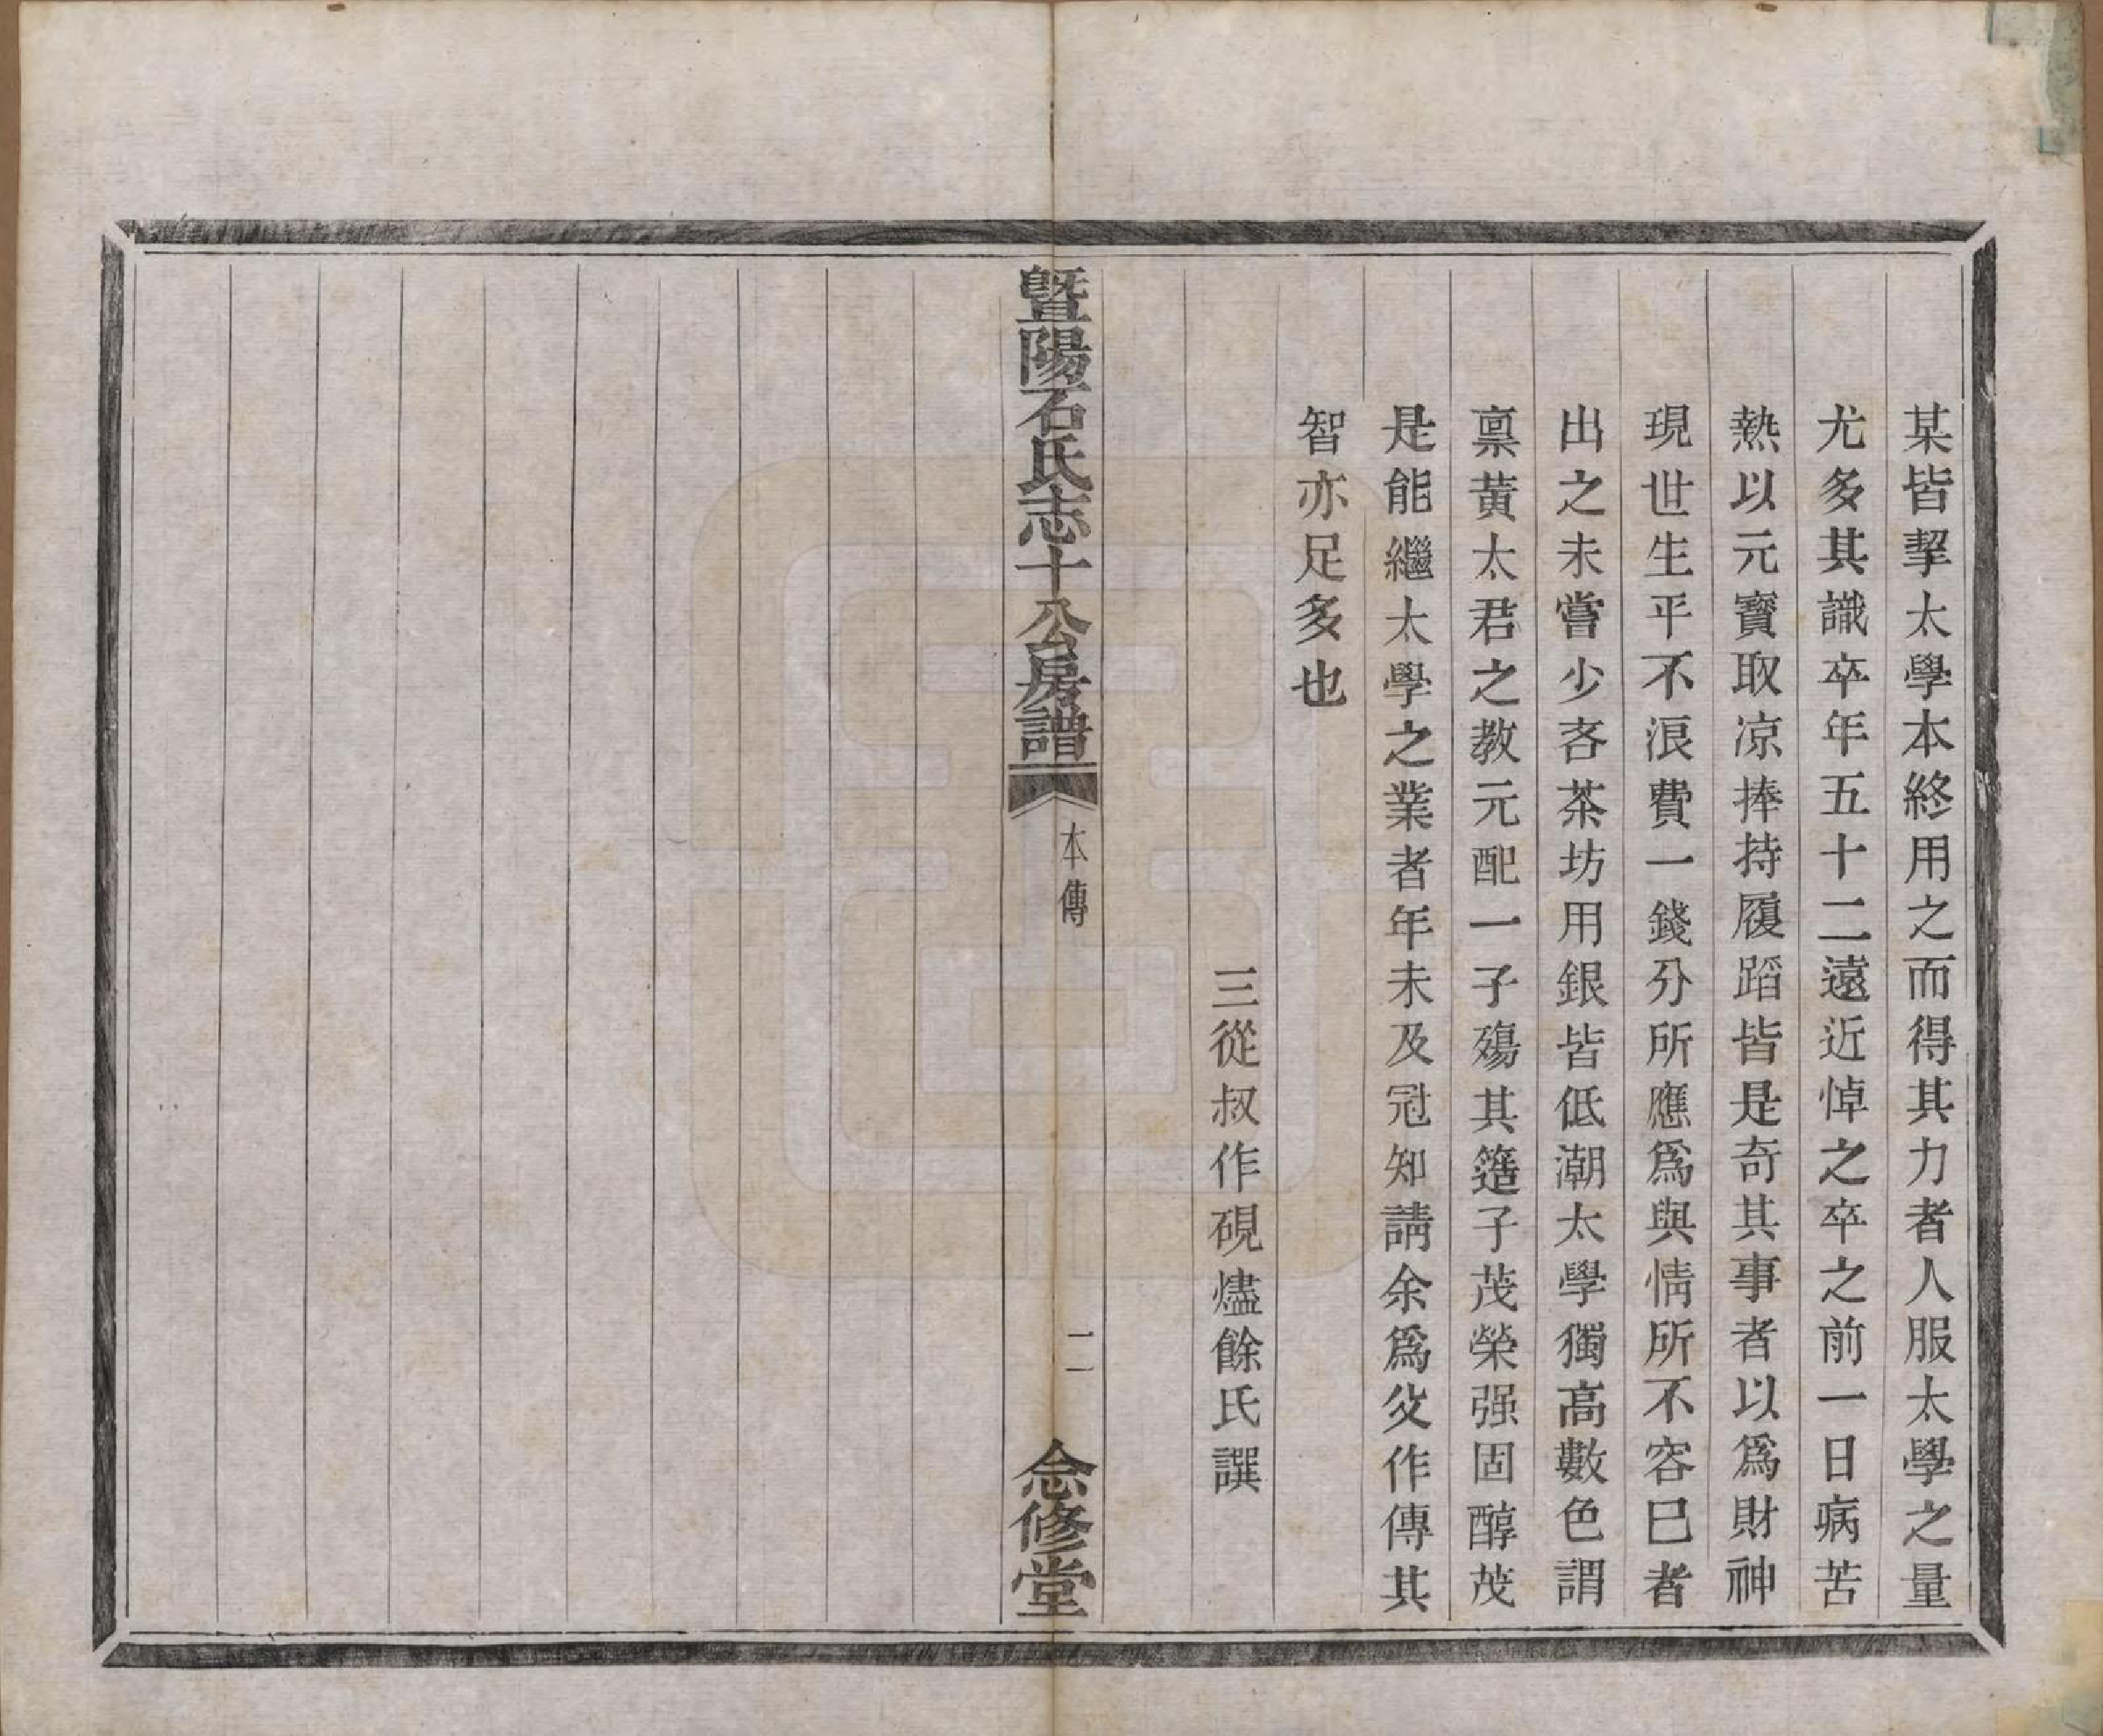 某皆挈太學本終用之而得其力者人服太學之量
尤多其識卒年五十二遠近悼之卒之前一日病苦
熱以元寶取凉捧持履蹈皆是奇其事者以爲財神
現世生平不浪費一錢分所應爲與情所不容已者
出之未嘗少吝茶坊用銀皆低潮太學獨高數色謂
禀黃太君之教元配一子殤其簉子茂榮强固醇茂
是能繼太學之業者年未及冠知請余爲父作傳其
智亦足多也
三從叔作硯燼餘氏譔
暨陽石氏志十公房譜
本傳
二
念修堂